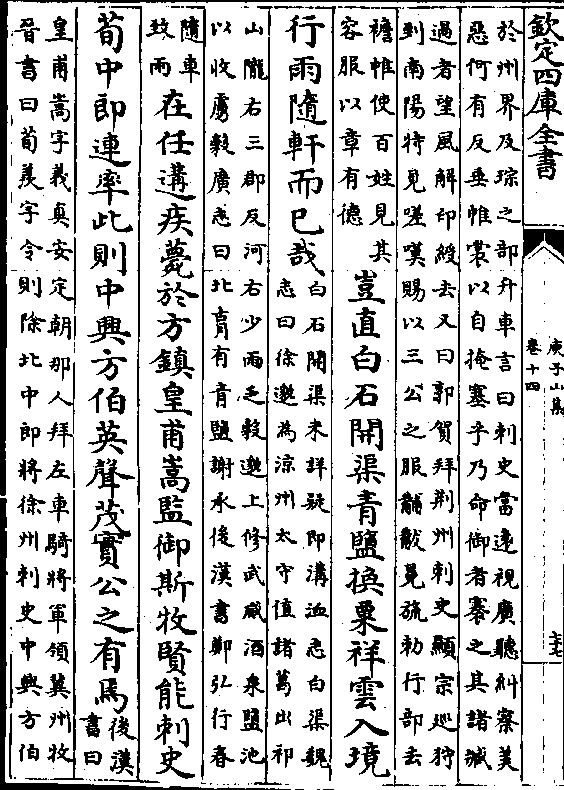 欽定四庫全書
庚子山集
卷十四
於州界及琮之部升車言曰刺史當逺視廣聽糾察美
惡何有反垂帷裳以自掩塞乎乃命御者褰之其諸贓
過者望風解印綬去又曰郭賀拜荆州刺史顯宗巡狩
到南陽特見嗟嘆賜以三公之服黼黻冕旒勅行部去
襜帷使百姓見其
容服以章有德
豈直白石開渠青鹽換粟祥雲入境
行雨隨軒而已哉
白石開渠未詳疑即溝洫志白渠魏
志曰徐邈為涼州太守值諸葛出祁
山隴右三郡反河右少雨乏穀邈上修武威酒泉鹽池
以收虜穀廣志曰北有青鹽謝承後漢書鄭弘行春
隨車
致雨
在任遘疾薨於方鎮皇甫嵩監御斯牧賢能刺史
荀中郎連率此則中興方伯英聲茂實公之有焉
後漢
書曰
皇甫嵩字義真安定朝那人拜左車騎將軍領冀州牧
晉書曰荀羨字令則除北中郎將徐州刺史中興方伯